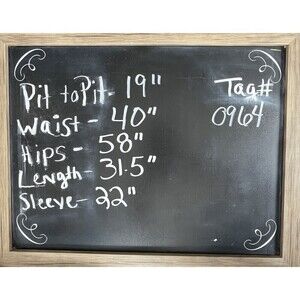 Pit to Pit - 19"
Waist - 40"
Hips - 58"
Length - 31.5"
Sleeve - 22"
Tag#
0964